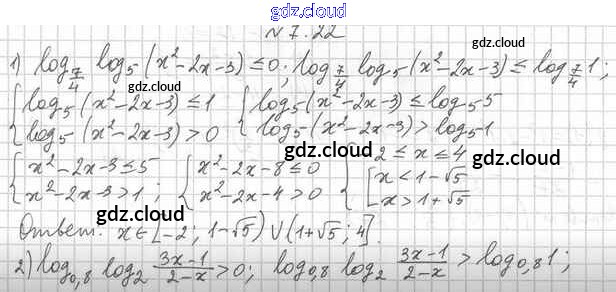 gdz.cloud
№7.22
gdz.cloud
1) log_{7/4} log_5 (x²-2x-3) ≤ 0; log_{7/4} log_5 (x²-2x-3) ≤ log_{7/4} 1;
gdz.cloud gdz.cloud
{ log_5 (x²-2x-3) ≤ 1 { log_5 (x²-2x-3) ≤ log_5 5
{ log_5 (x²-2x-3) > 0 { log_5 (x²-2x-3) > log_5 1
gdz.cloud
{ x²-2x-3 ≤ 5 { x²-2x-8 ≤ 0 { 2 ≤ x ≤ 4
{ x²-2x-3 > 1; { x²-2x-4 > 0 { [ x < 1-√5
[ x > 1+√5
gdz.cloud gdz.cloud
Ответ: x∈[-2; 1-√5) ∪ (1+√5; 4].
gdz.cloud
2) log_{0,8} log_2 (3x-1)/(2-x) > 0; log_{0,8} log_2 (3x-1)/(2-x) > log_{0,8} 1;